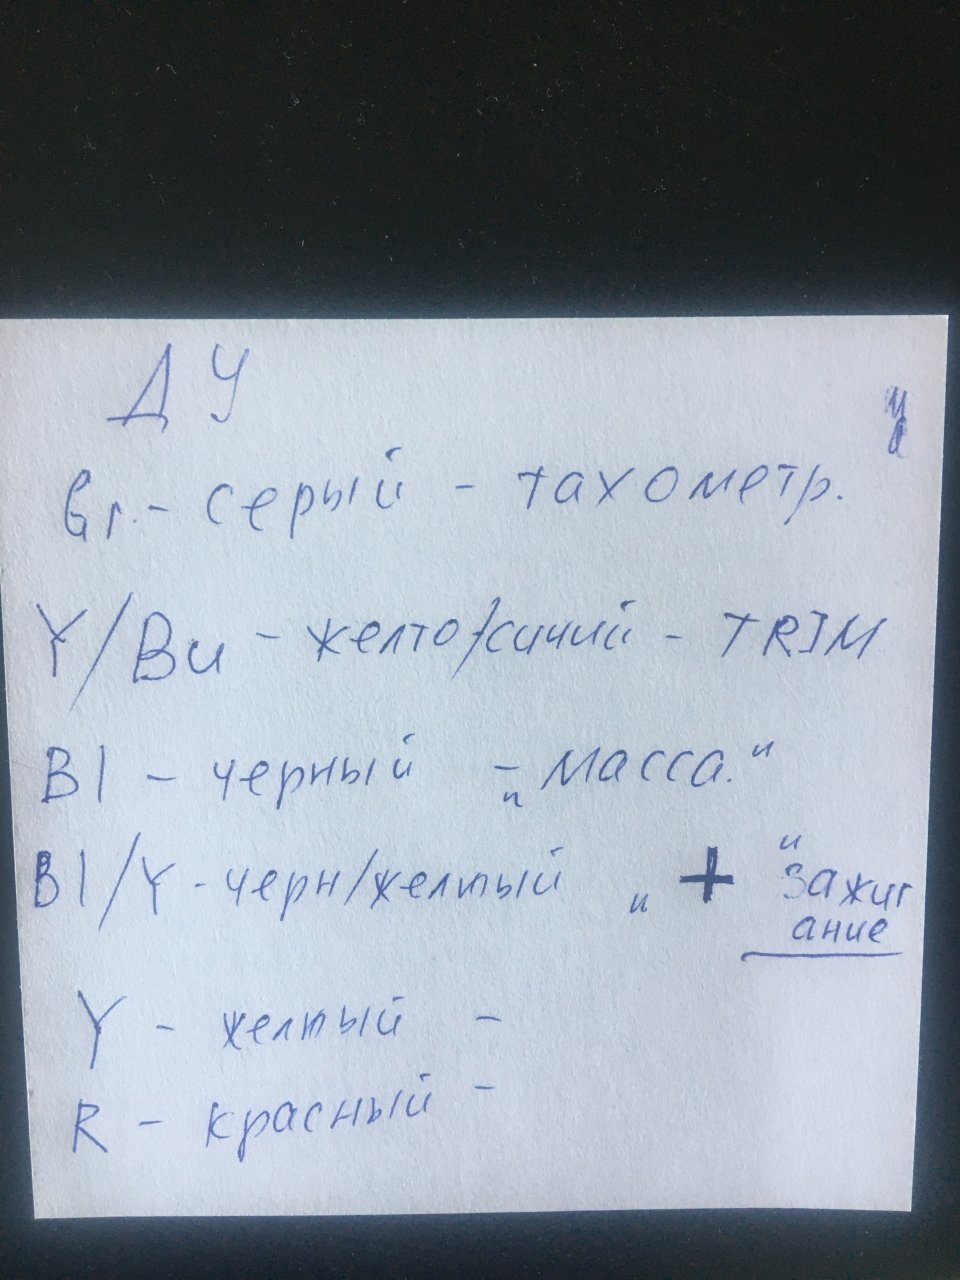 ДУ
Gr. - серый - тахометр.
Y/Bu - желто/синий - TRIM
Bl - черный - "масса."
Bl/Y - черн/желтый " + "зажиг
ание
Y - желтый -
R - красный -